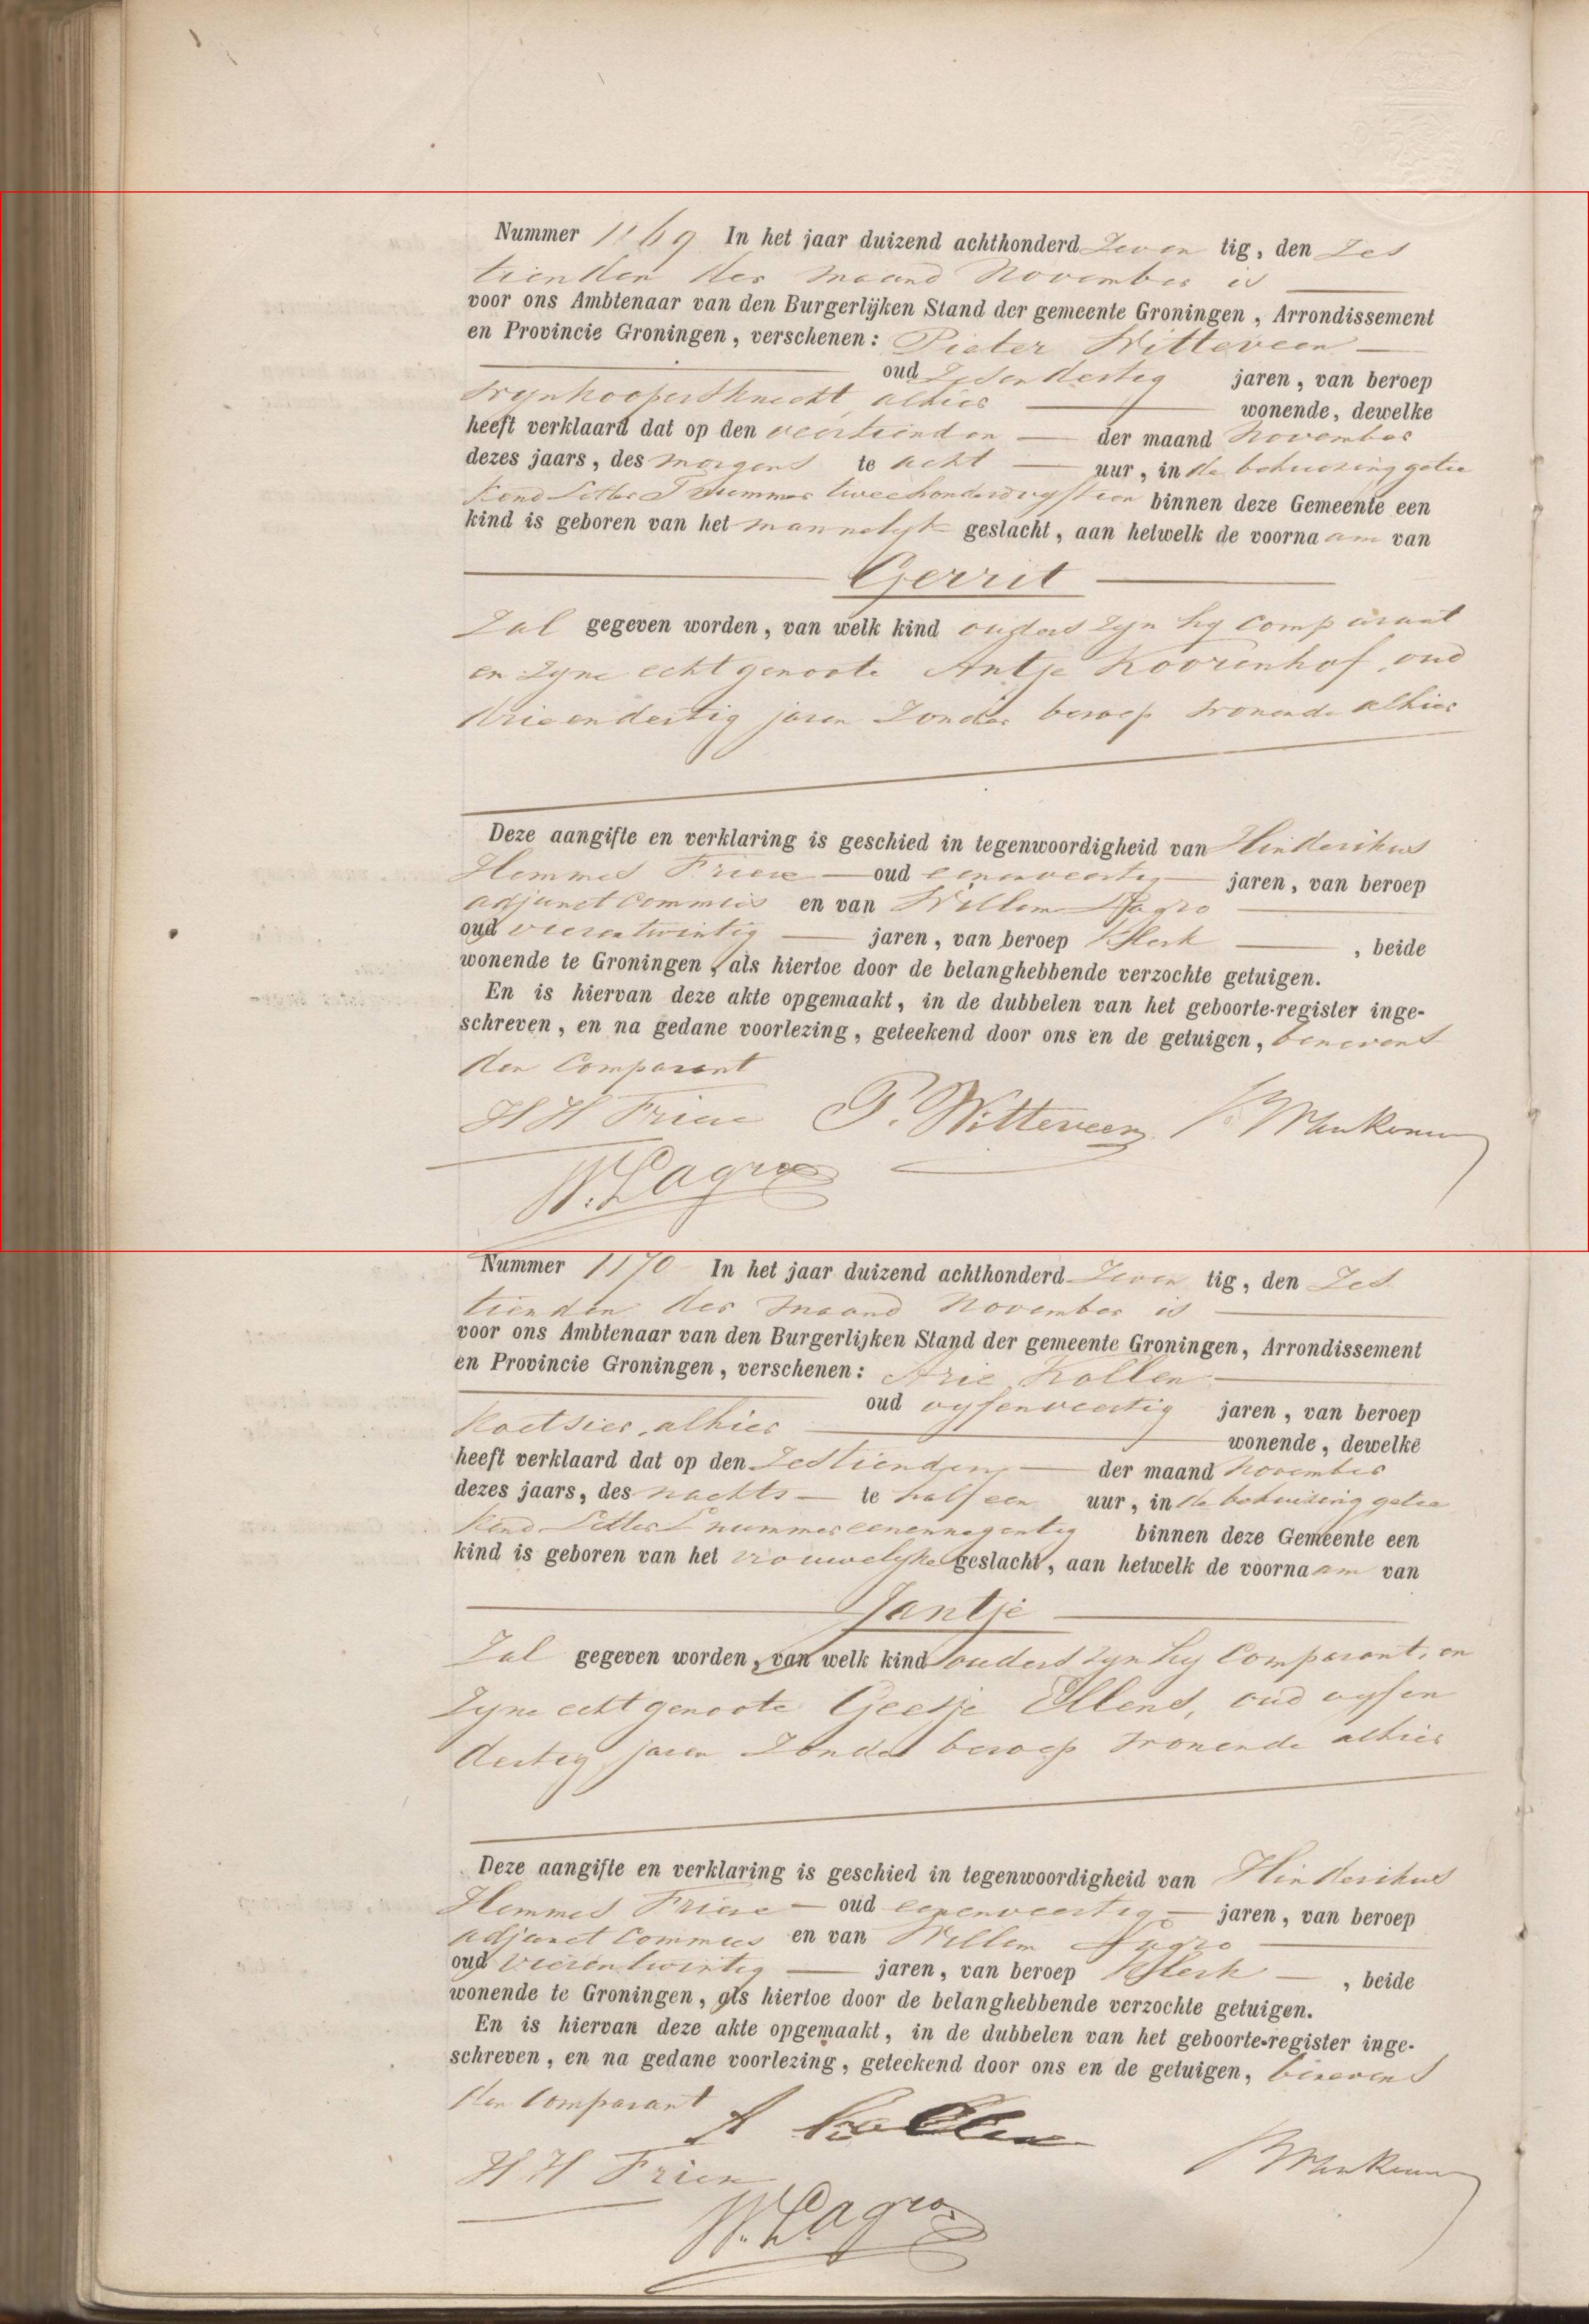 Nummer 1169 In het jaar duizend achthonderd Zeven tig, den Zes
tienden der maand November is
voor ons Ambtenaar van den Burgerlijken Stand der gemeente Groningen, Arrondissement
en Provincie Groningen, verschenen: Pieter Witteveen
oud Zesendertig jaren, van beroep
wynkoopersknecht, alhier wonende, dewelke
heeft verklaard dat op den veertienden der maand November
dezes jaars, des morgens te acht uur, in de behuizing getee
kend Letter nummer tweehonderdvyftien binnen deze Gemeente een
kind is geboren van het mannelyk geslacht, aan hetwelk de voornaam van
Gerrit
Zal gegeven worden, van welk kind ouders zyn hy comparant
en zyne echtgenoote Antje Koorenhof, oud
drieendertig jaren zonder beroep wonende alhier
Deze aangifte en verklaring is geschied in tegenwoordigheid van Hinderikus
Hemmes Friese oud eenenveertig jaren, van beroep
adjunct commies en van Willem Lagro
oud vierentwintig jaren, van beroep Klerk, beide
wonende te Groningen, als hiertoe door de belanghebbende verzochte getuigen.
En is hiervan deze akte opgemaakt, in de dubbelen van het geboorte-register inge-
schreven, en na gedane voorlezing, geteekend door ons en de getuigen, benevens
den Comparant
H H Friese P. Witteveen
W. Lagro
Nummer 1170 In het jaar duizend achthonderd Zeven tig, den Zes
tienden der maand November is
voor ons Ambtenaar van den Burgerlijken Stand der gemeente Groningen, Arrondissement
en Provincie Groningen, verschenen: Arie Kollen
oud vyfenveertig jaren, van beroep
Koetsier, alhier wonende, dewelke
heeft verklaard dat op den Zestienden der maand November
dezes jaars, des nachts te half een uur, in de behuizing getee
kend Letter L nummer eenennegentig binnen deze Gemeente een
kind is geboren van het vrouwelyke geslacht, aan hetwelk de voornaam van
Jantje
Zal gegeven worden, van welk kind ouders zyn hy Comparant, en
Zyne echtgenoote Geesje Ellens, oud vyfen
dertig jaren zonder beroep wonende alhier
Deze aangifte en verklaring is geschied in tegenwoordigheid van Hinderikus
Hemmes Friese oud eenenveertig jaren, van beroep
adjunct Commies en van Willem Lagro
oud vierentwintig jaren, van beroep Klerk, beide
wonende te Groningen, als hiertoe door de belanghebbende verzochte getuigen.
En is hiervan deze akte opgemaakt, in de dubbelen van het geboorte-register inge-
schreven, en na gedane voorlezing, geteekend door ons en de getuigen, benevens
den Comparant
A Kollen
H H Friese
W. Lagro